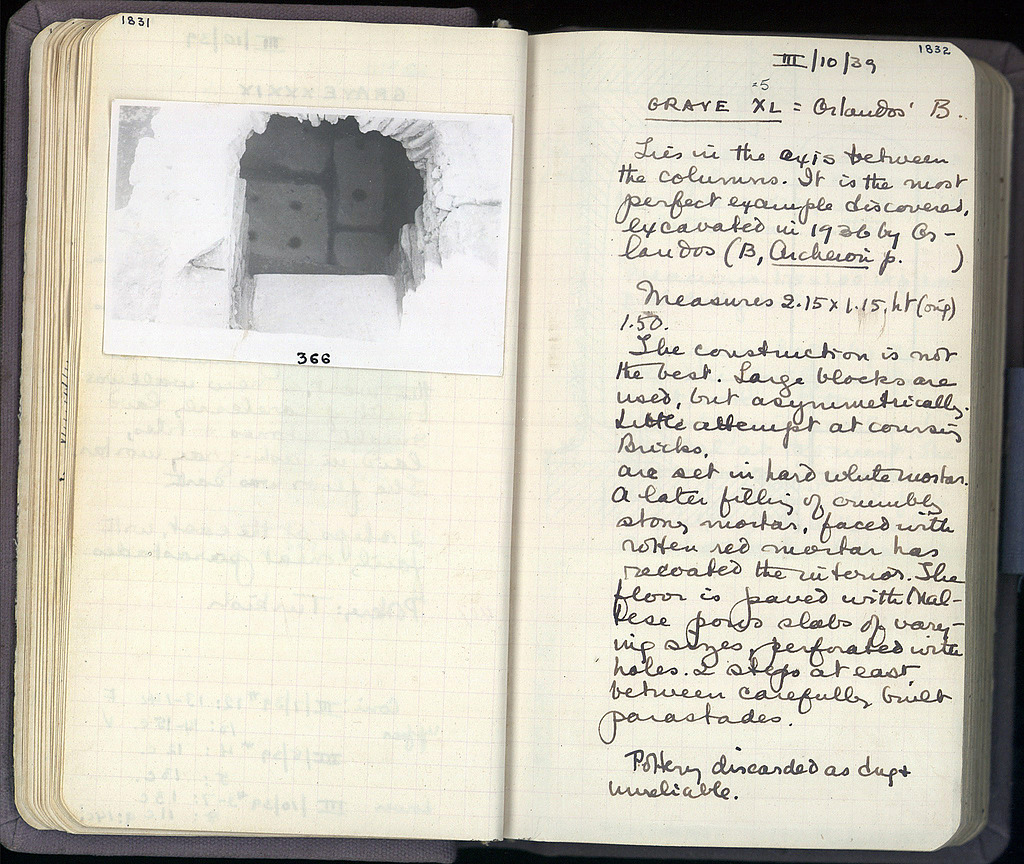 1831
366
1832
III/10/39
=5
GRAVE XL = Orlandos' B.
Lies in the axis between
the columns. It is the most
perfect example discovered,
excavated in 1936 by Or-
landos (B, Archeion p. )
Measures 2.15 x 1.15, ht (orig)
1.50.
The construction is not
the best. Large blocks are
used, but asymmetrically.
Little attempt at coursing
Bricks.
are set in hard white mortar.
A later filling of crumbly
stony mortar, faced with
rotten red mortar has
the interior. The
floor is paved with Mal-
tese poros slabs of vary-
ing sizes, perforated with
holes. 2 steps at east
between carefully built
parastades.
Pottery discarded as dug +
unreliable.